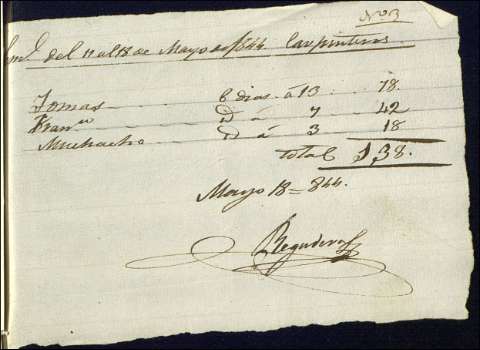 Nº 3
del 11 al 18 de Mayo de 1844 Carpinteros
Tomas 6 dias á 13 78
Franco D á 7 42
Muchacho D á 3 18
total 138.
Mayo 18 = 844.